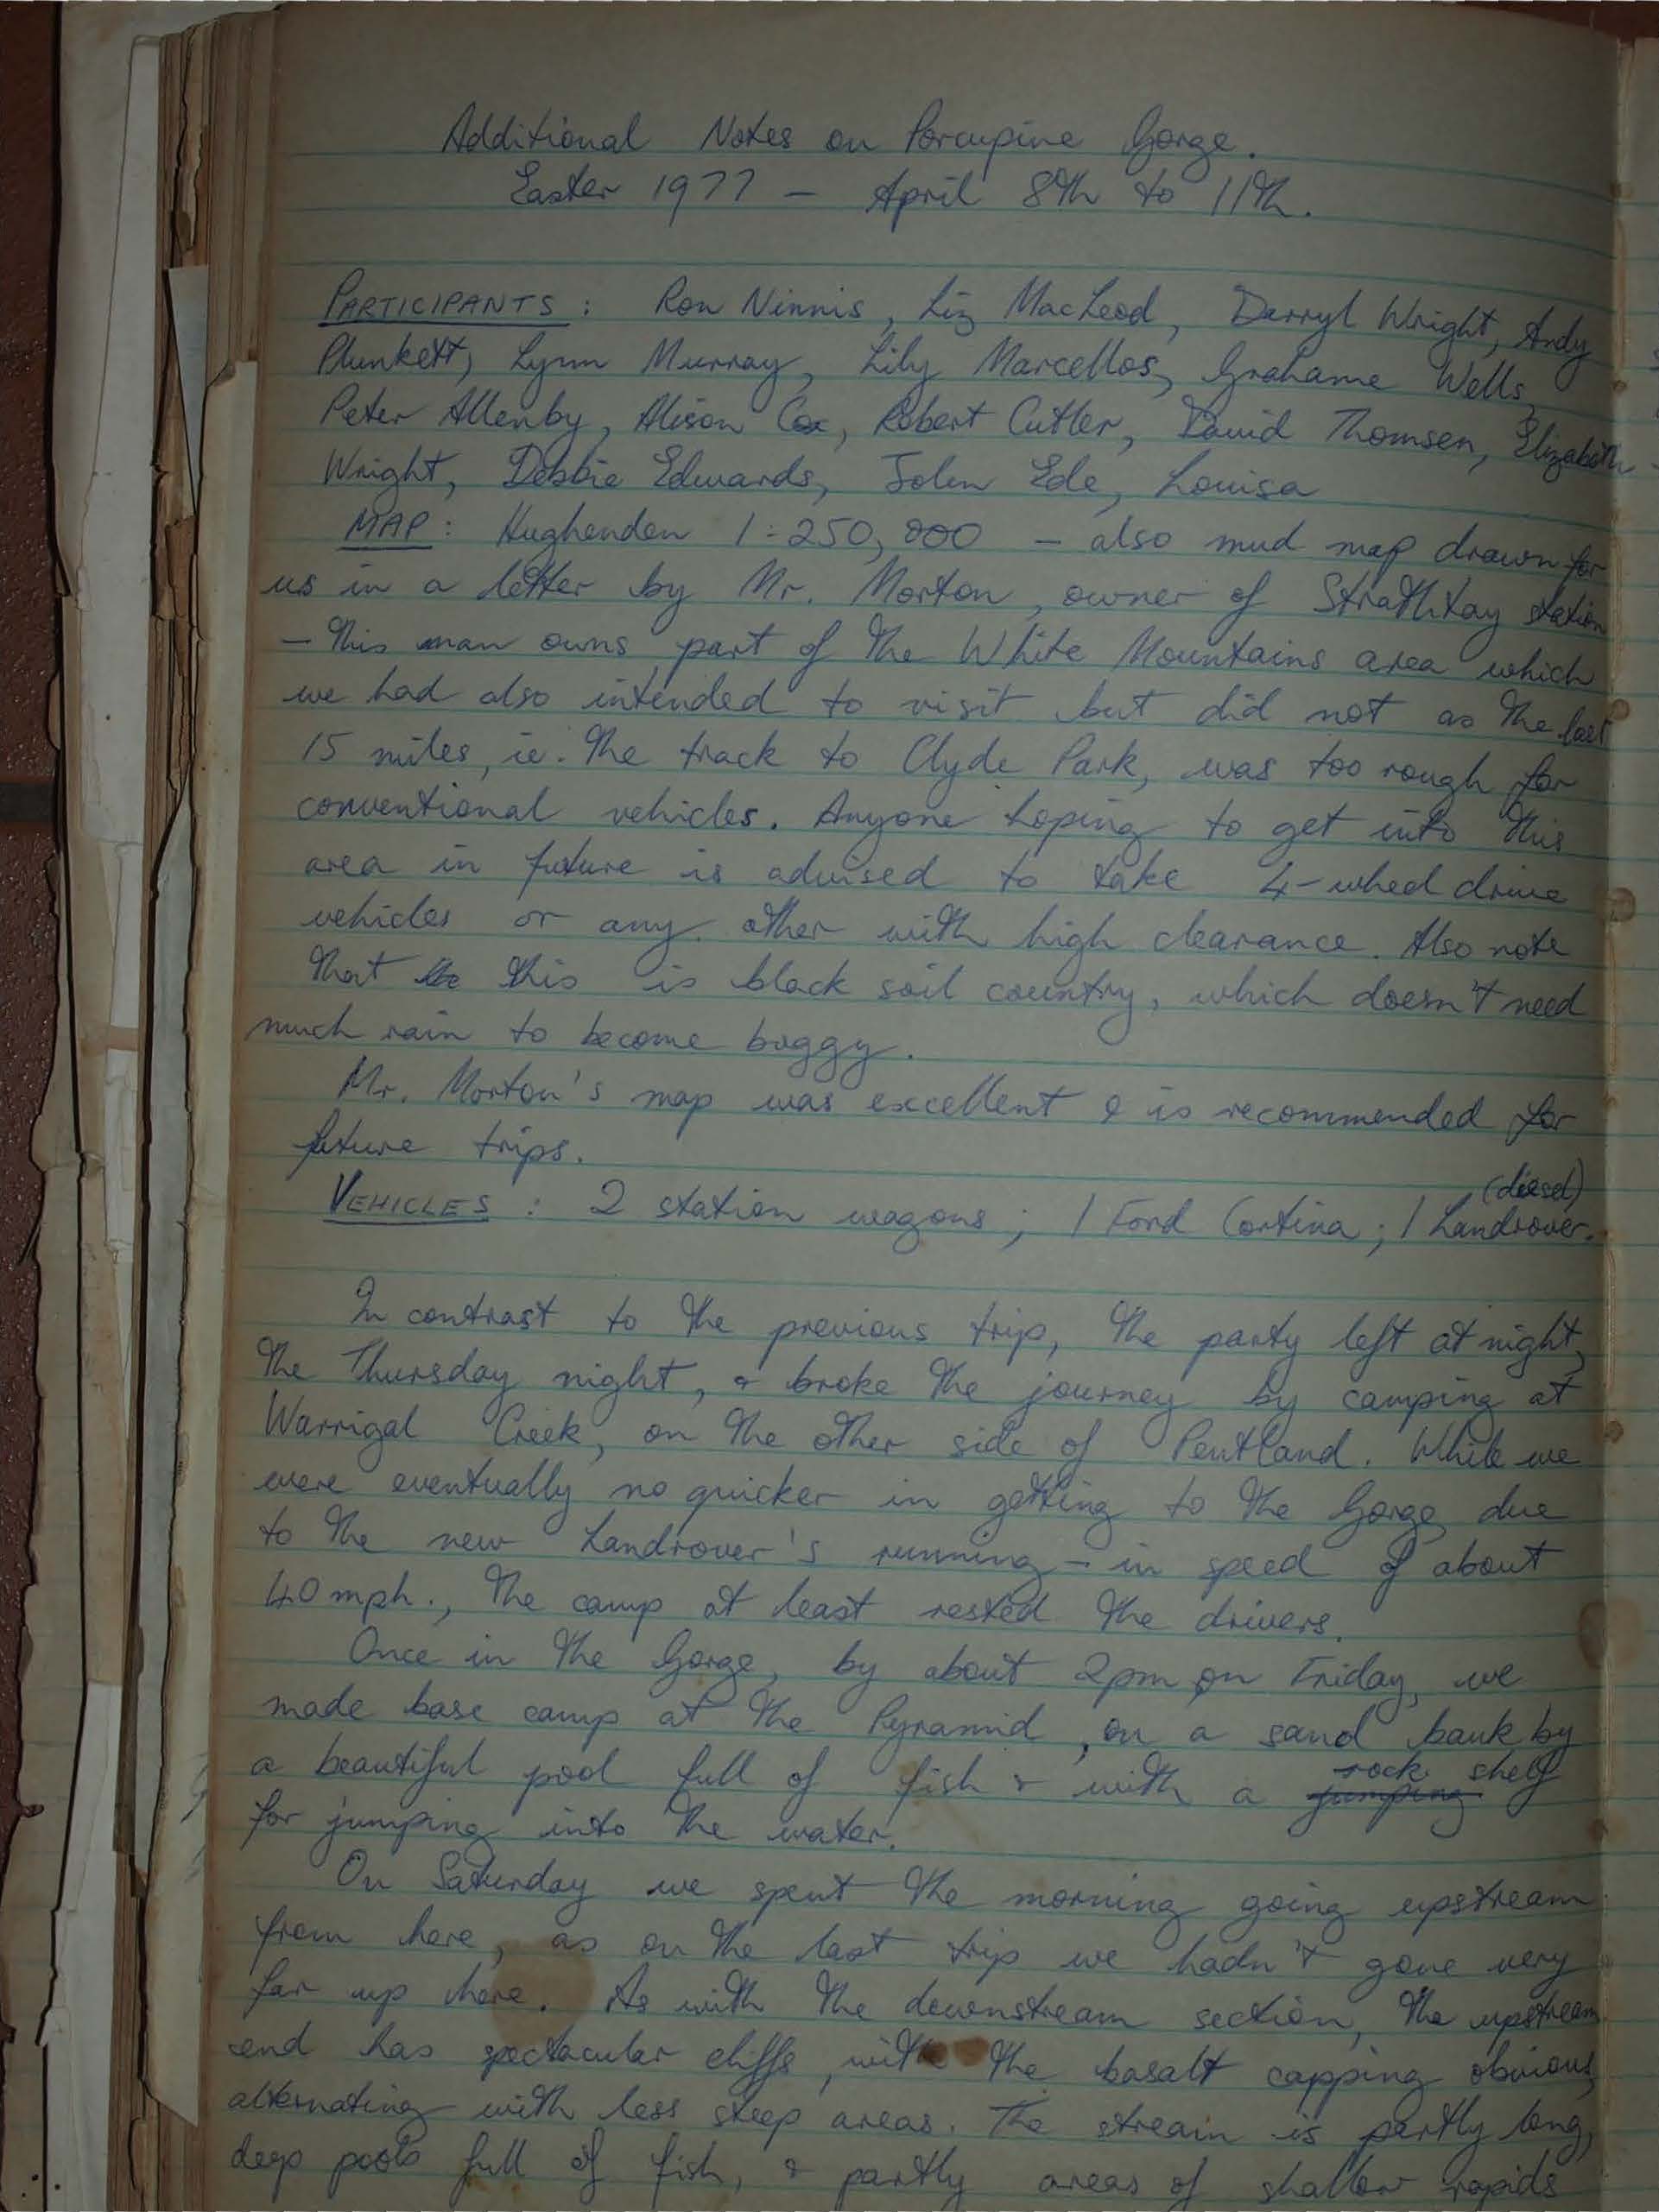 Additional Notes on Porcupine Gorge.
Easter 1977 - April 8th to 11th.
PARTICIPANTS: Ron Ninnis, Liz MacLeod, Darryl Wright, Andy
Plunkett, Lynn Murray, Lily Marcellos, Grahame Wells,
Peter Allenby, Alison Cox, Robert Cutler, David Thomsen, Elizabeth
Wright, Debbie Edwards, John Ede, Louisa
MAP: Hughenden 1:250,000 - also mud map drawn for
us in a letter by Mr. Morton, owner of Strathtay station
- this man owns part of the White Mountains area which
we had also intended to visit but did not as the last
15 miles, ie. the track to Clyde Park, was too rough for
conventional vehicles. Anyone hoping to get into this
area in future is advised to take 4-wheel drive
vehicles or any other with high clearance. Also note
that the this is black soil country, which doesn't need
much rain to become boggy.
Mr. Morton's map was excellent & is recommended for
future trips.
VEHICLES: 2 station wagons; 1 Ford Cortina; 1 (diesel) Landrover.
In contrast to the previous trip, the party left at night,
the Thursday night, & broke the journey by camping at
Warrigal Creek, on the other side of Pentland. While we
were eventually no quicker in getting to the Gorge, due
to the new Landrover's running-in speed of about
40 mph., the camp at least rested the drivers.
Once in the Gorge, by about 2pm on Friday, we
made base camp at the Pyramid, on a sand bank by
a beautiful pool full of fish & with a jumping rock shelf
for jumping into the water.
On Saturday we spent the morning going upstream
from here, as on the last trip we hadn't gone very
far up here. As with the downstream section, the upstream
end has spectacular cliffs, with the basalt capping obvious,
alternating with less steep areas. The stream is partly long,
deep pools full of fish, & partly areas of shallow rapids